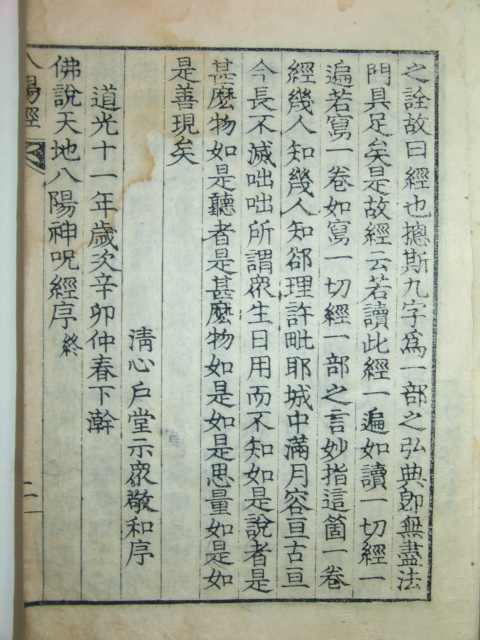 之詮故曰經也摠斯九字爲一部之弘典卽無盡法
門具足矣是故經云若讀此經一遍如讀一切經一
遍若寫一卷如寫一切經一部之言妙指這箇一卷
經幾人知幾人知郤理許毗耶城中滿月容亘古亘
今長不滅咄咄所謂衆生日用而不知如是說者是
甚麽物如是聽者是甚麽物如是如是思量如是如
是善現矣
淸心戶堂示衆敬和序
道光十一年歲次辛卯仲春下澣
佛說天地八陽神呪經序 終
八陽經
二